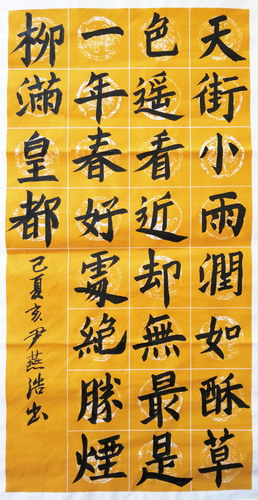 天街小雨潤如酥草
色遥看近却無最是
一年春好處絶勝煙
柳滿皇都
己夏亥尹燕浩书